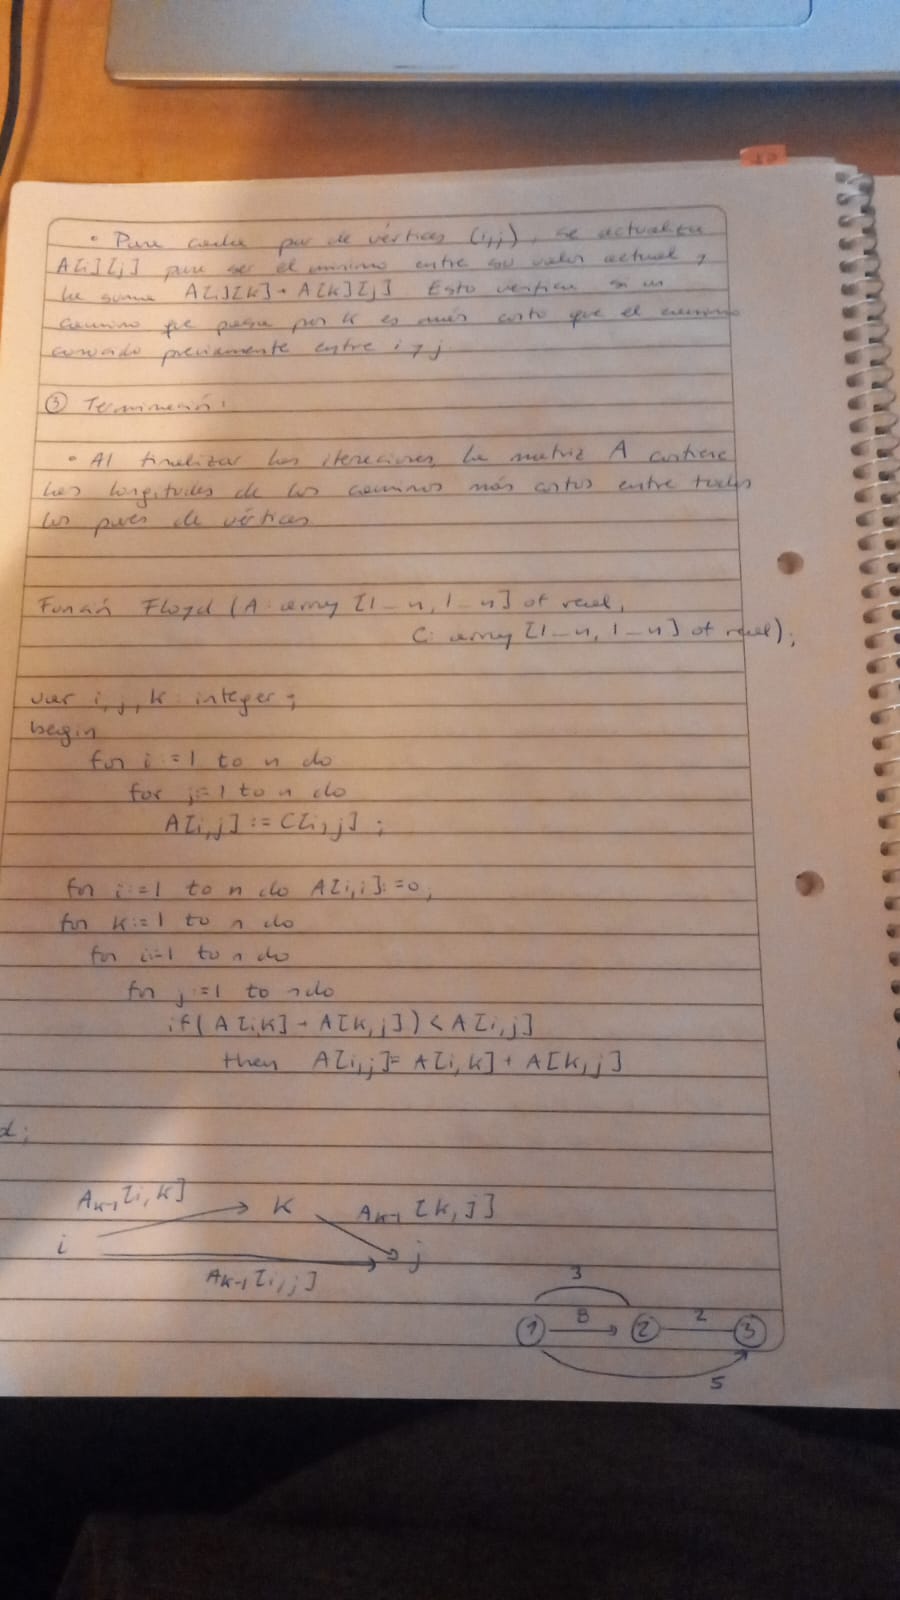 • Para cada par de vértices (i,j), se actualiza
A[i][j] para ser el mínimo entre su valor actual y
la suma A[i][k] + A[k][j]. Esto verifica si un
camino que pasa por k es más corto que el camino
conocido previamente entre i y j
③ Terminación:
• Al finalizar las iteraciones, la matriz A contiene
las longitudes de los caminos más cortos entre todos
los pares de vértices
Función Floyd (A: array [1-n, 1-n] of real,
C: array [1-n, 1-n] of real);
var i, j, k: integer;
begin
for i:=1 to n do
for j:=1 to n do
A[i,j] := C[i,j];
for i:=1 to n do A[i,i]:=0;
for k:=1 to n do
for i:=1 to n do
for j:=1 to n do
if (A[i,k] + A[k,j]) < A[i,j]
then A[i,j]= A[i,k] + A[k,j]
d;
Ak-1 [i, k]
k
Ak-1 [k, j]
i
j
Ak-1 [i, j]
3
1 8 2 2 3
5